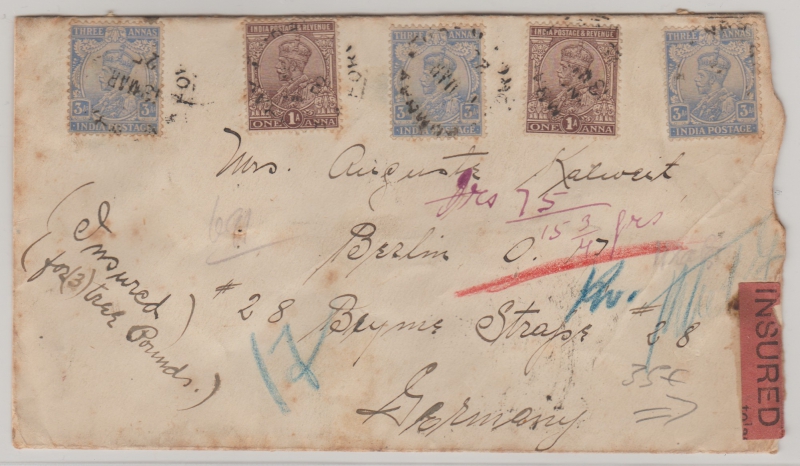 THREE ANNAS
3A
INDIA POSTAGE
INDIA POSTAGE & REVENUE
ONE 1A ANNA
THREE ANNAS
3A 3A
INDIA POSTAGE
INDIA POSTAGE & REVENUE
ONE 1A ANNA
THREE ANNAS
3A 3A
INDIA POSTAGE
Mrs. Auguste Kalweit
grs 75
15 3/4 grs
Berlin O. 17
# 28 Beyme Straße # 28
Germany
(Insured
for (3) tree Pounds.)
12
354
INSURED